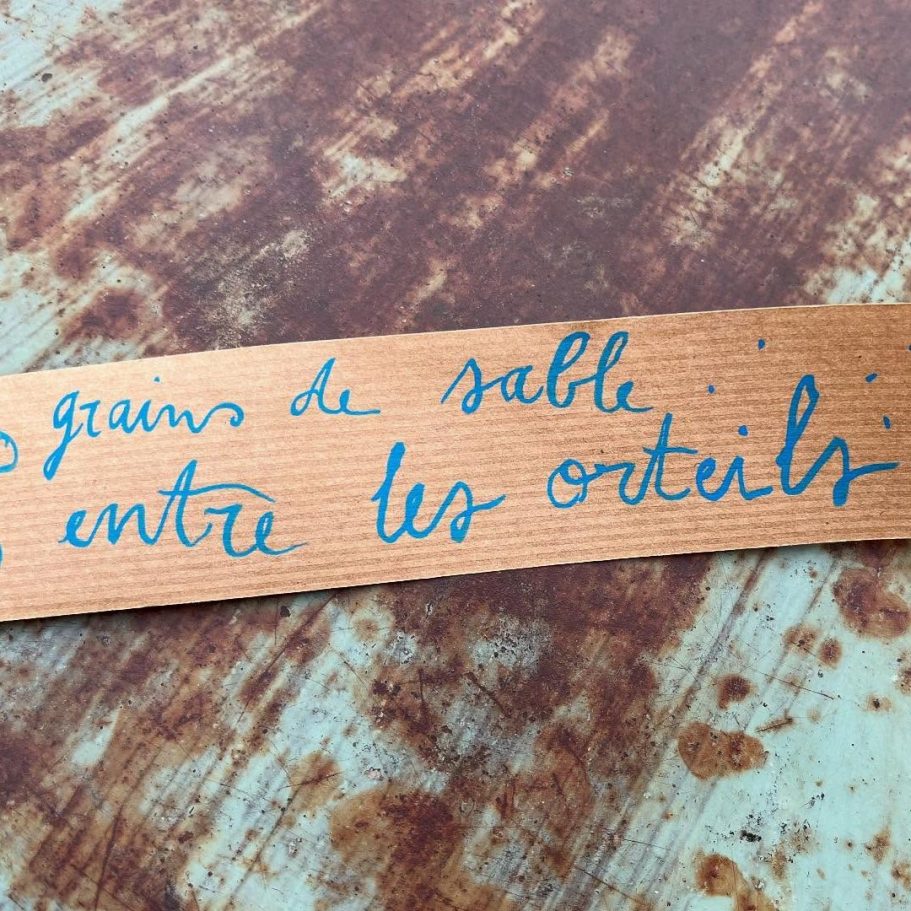 grains de sable
entre les orteils